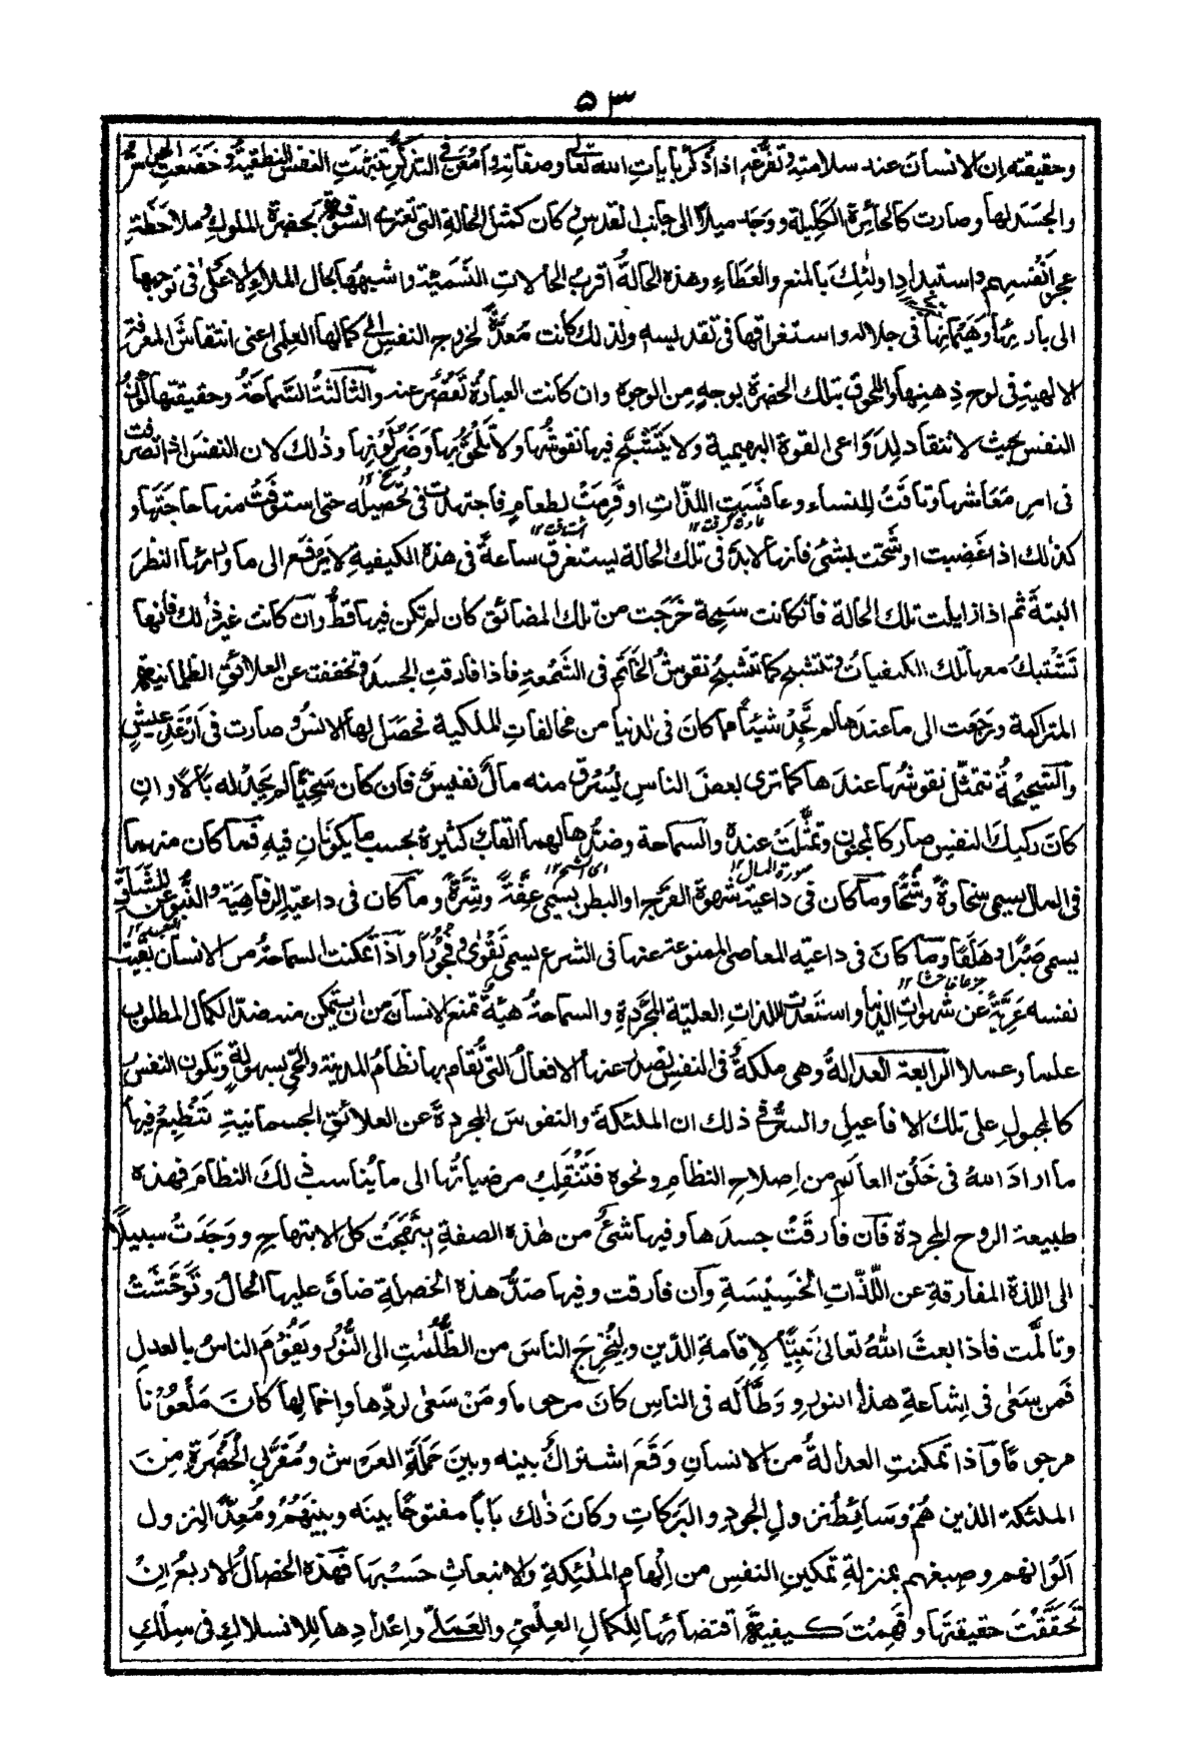 ٥٣
وحقيقته ان الانسان عند سلامته وتفرغه اذا ذكر بايات الله تعالى وصفاته وامعن فى التذكر تنبهت النفس النطقية وخضعت الحواس
والجسد لها وصارت كالحائرة الكليلة ووجد ميلا الى جانب القدس وكان كمثل الحالة التى تعترى السوقة بحضرة الملوك وملاحظة
عجز انفسهم واستبداد اولئك بالمنع والعطاء وهذه الحالة اقرب الحالات النسمية واشبهها بحال الملاء الاعلى فى توجهها
الى بارئها وهيمانها فى جلاله واستغراقها فى تقديسه ولذلك كانت معدة لخروج النفس الى كمالها العلمى اعنى انتقاش المعرفة
الالهية فى لوح ذهنها واللحوق بتلك الحضرة بوجه من الوجوه وان كانت العبارة تقصر عنه والثالثة السماحة وحقيقتها كون
النفس بحيث لا تنقاد لدواعى القوة البهيمية ولا يتشبح فيها نقوشها ولا تلحق بها وضر لونها وذلك لان النفس اذا تصرفت
فى امر معاشها وتاقت للنساء وعافست اللذات او قرمت لطعام فاجتهدت فى تحصيله حتى استوفت منها حاجتها و
كذلك اذا غضبت او شحت بشئ فانها لا بد فى تلك الحالة يستغرق ساعة فى هذه الكيفية لا يرفع الى ما ورائها النظر
البتة ثم اذا زايلت تلك الحالة فان كانت سمحة خرجت من تلك المضائق كان لم تكن فيها قط وان كانت غير ذلك فانها
تشتبك معها تلك الكيفيات وتتشبح كما تتشبح نقوش الخاتم فى الشمعة فاذا فارقت الجسد وتخففت عن العلائق الظلمانية
المتراكمة ورجعت الى ما عندها لم تجد شيئا مما كان فى الدنيا من مخالفات الملكية فحصل لها الانس وصارت فى ارغد عيش
والشحيحة تتمثل نقوشها عندها كما ترى بعض الناس يسرق منه مال نفيس فان كان سخيا لم يجد له بالا وان
كان ركيك النفس صار كالمجنون وتمثلت عنده والسماحة وضدها لهما القاب كثيرة بحسب ما يكونان فيه فما كان منهما
فى المال يسمى سخاوة وشحا وما كان فى داعية شهوة الفرج او البطن يسمى عفة وشرة وما كان فى داعية الرفاهية والنبو عن المشاق
يسمى صبرا وهلعا وما كان فى داعية المعاصى الممنوعة عنها فى الشرع يسمى تقوى وفجورا واذا تمكنت السماحة من الانسان بقيت
نفسه عرية عن شهوات الدنيا واستعدت للذات العلية المجردة والسماحة هيئة تمنع الانسان من ان يتمكن منه ضد الكمال المطلوب
علما وعملا الرابعة العدالة وهى ملكة فى النفس تصدر عنها الافعال التى تقام بها نظام المدينة والحى بسهولة وتكون النفس
كالمجبول على تلك الافاعيل والسر فى ذلك ان الملئكة والنفوس المجردة عن العلائق الجسمانية تنطبع فيها
ما اراد الله فى خلق العالم من اصلاح النظام ونحوه فتنقلب مرضياتها الى ما يناسب ذلك النظام فهذه
طبيعة الروح المجردة فان فارقت جسدها وفيها شئ من هذه الصفة ابتهجت كل الابتهاج ووجدت سبيلا
الى اللذة المفارقة عن اللذات الخسيسة وان فارقت وفيها ضد هذه الخصلة ضاق عليها الحال وتوحشت
وتالمت فاذا بعث الله تعالى نبيا لاقامة الدين وليخرج الناس من الظلمت الى النور ويقوم الناس بالعدل
فمن سعى فى اشاعة هذا النور ووطأ له فى الناس كان مرحوما ومن سعى لردها واخمالها كان ملعونا
مرجوما واذا تمكنت العدالة من الانسان وقع اشتراك بينه وبين حملة العرش ومقربى الحضرة من
الملئكة الذين هم وسائط نزول الجود والبركات وكان ذلك بابا مفتوحا بينه وبينهم ومعدا لنزول
الوانهم وصبغهم بمنزلة تمكين النفس من الهام الملئكة والانبعاث حسبها فهذه الخصال الاربع ان
تحققت حقيقتها وفهمت كيفية اقتضائها للكمال العلمى والعملى واعدادها للانسلاك فى سلك